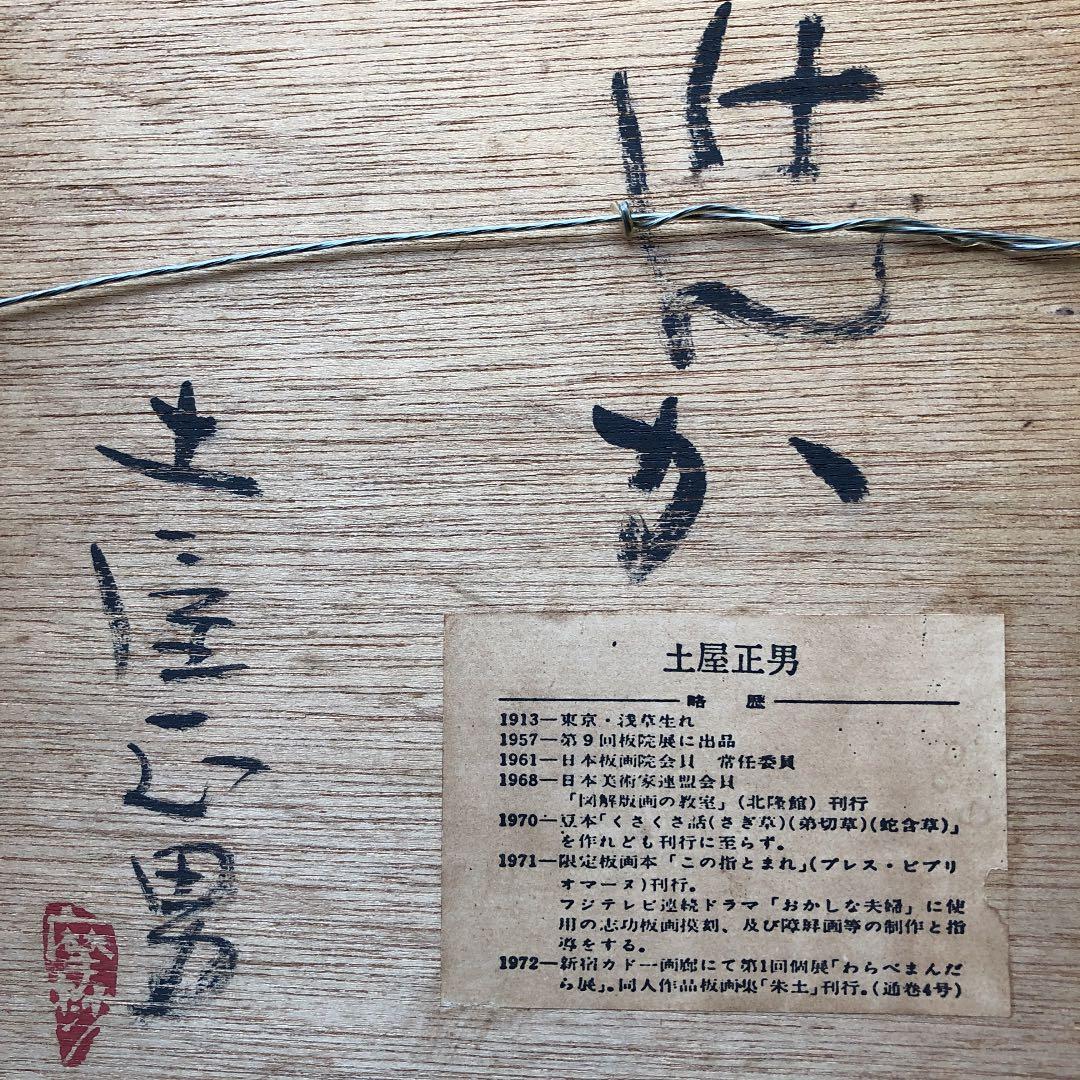 けんか
土屋正男
土屋正男
略歴
1913―東京・浅草生れ
1957―第9回板院展に出品
1961―日本板画院会員 常任委員
1968―日本美術家連盟会員
「図解版画の教室」(北隆館)刊行
1970―豆本「くさくさ話(さぎ草)(弟切草)(蛇含草)」
を作れども刊行に至らず。
1971―限定板画本「この指とまれ」(プレス・ビブリ
オマーヌ)刊行。
フジテレビ連続ドラマ「おかしな夫婦」に使
用の志功板画摸刻、及び障屏画等の制作と指
導をする。
1972―新宿カドー画廊にて第1回個展「わらべまんだ
ら展」。同人作品板画集「朱土」刊行。(通巻4号)